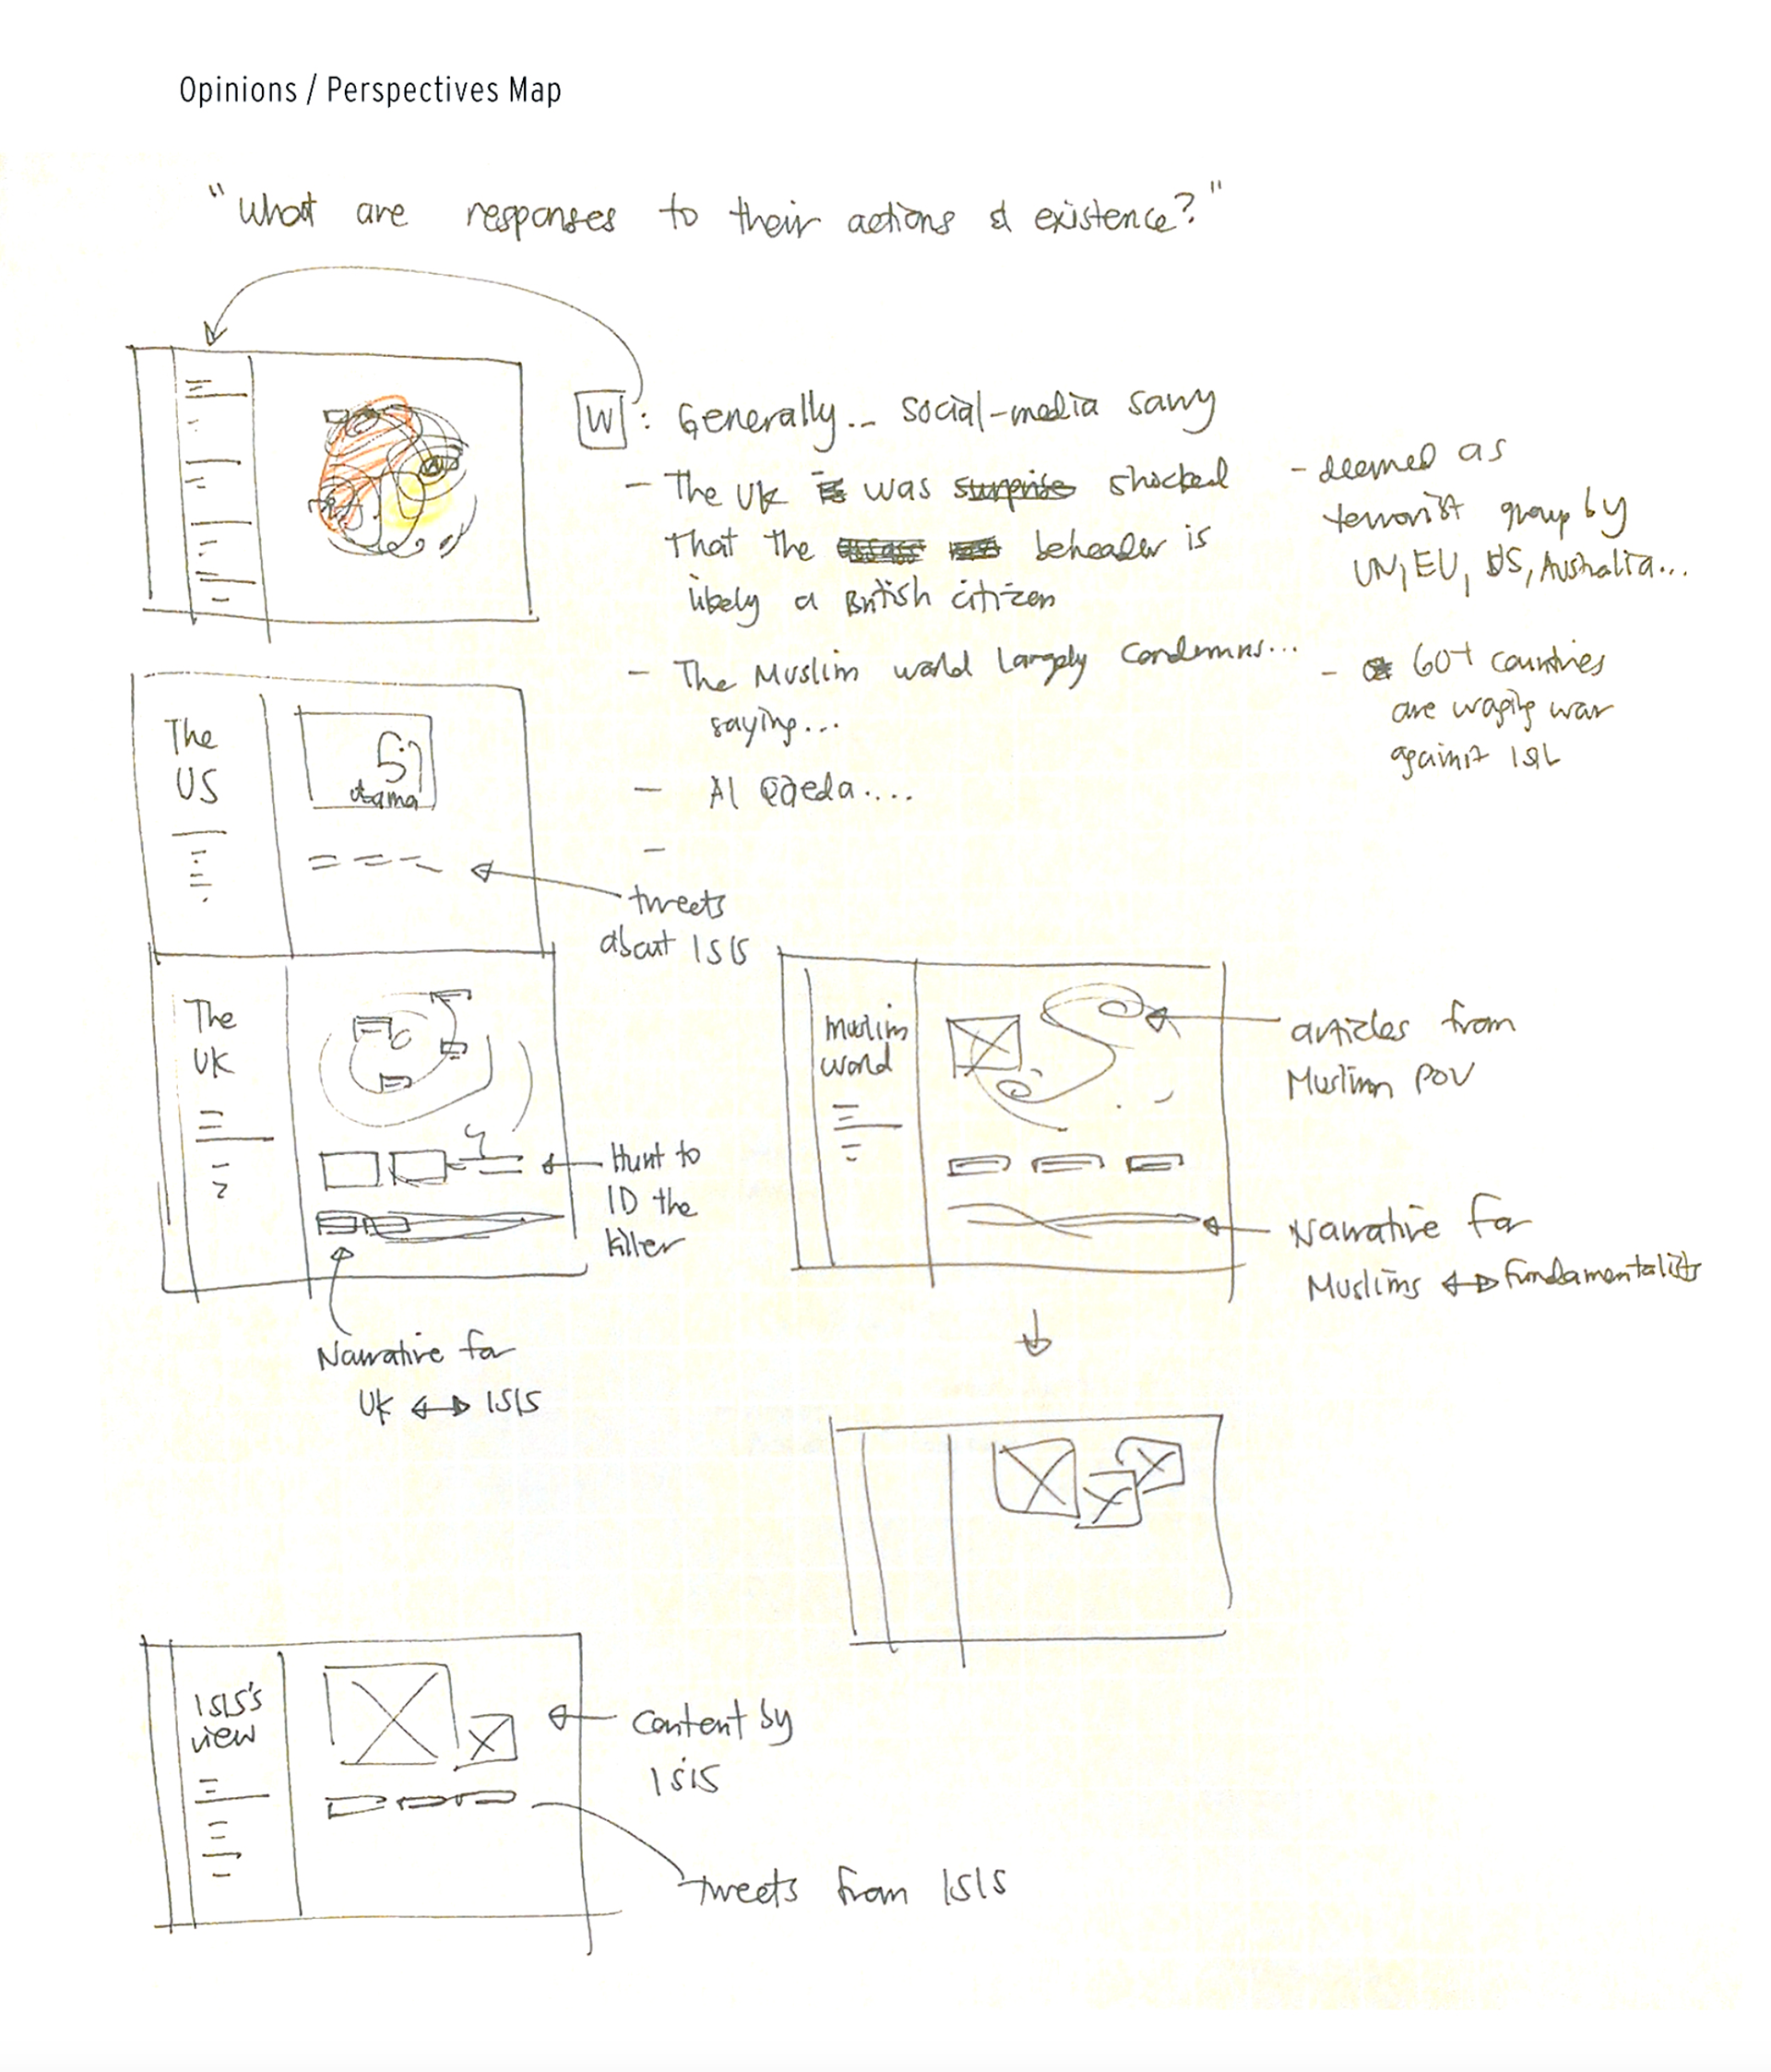 Opinions / Perspectives Map
"What are responses to their actions & existence?"
W : Generally.. social-media savvy
- The UK is was surprise shocked
That the beheader is
likely a British citizen
- The Muslim world largely condemns...
saying...
- Al Qaeda....
-
- deemed as
terrorist group by
UN, EU, US, Australia...
- 60+ countries
are waging war
against ISIL
The
US
Obama
tweets
about ISIS
The
UK
Hunt to
ID the
killer
Narrative for
UK ↔ ISIS
Muslim
world
articles from
Muslim POV
Narrative for
Muslims ↔ Fundamentalists
ISIS's
view
Content by
ISIS
Tweets from ISIS